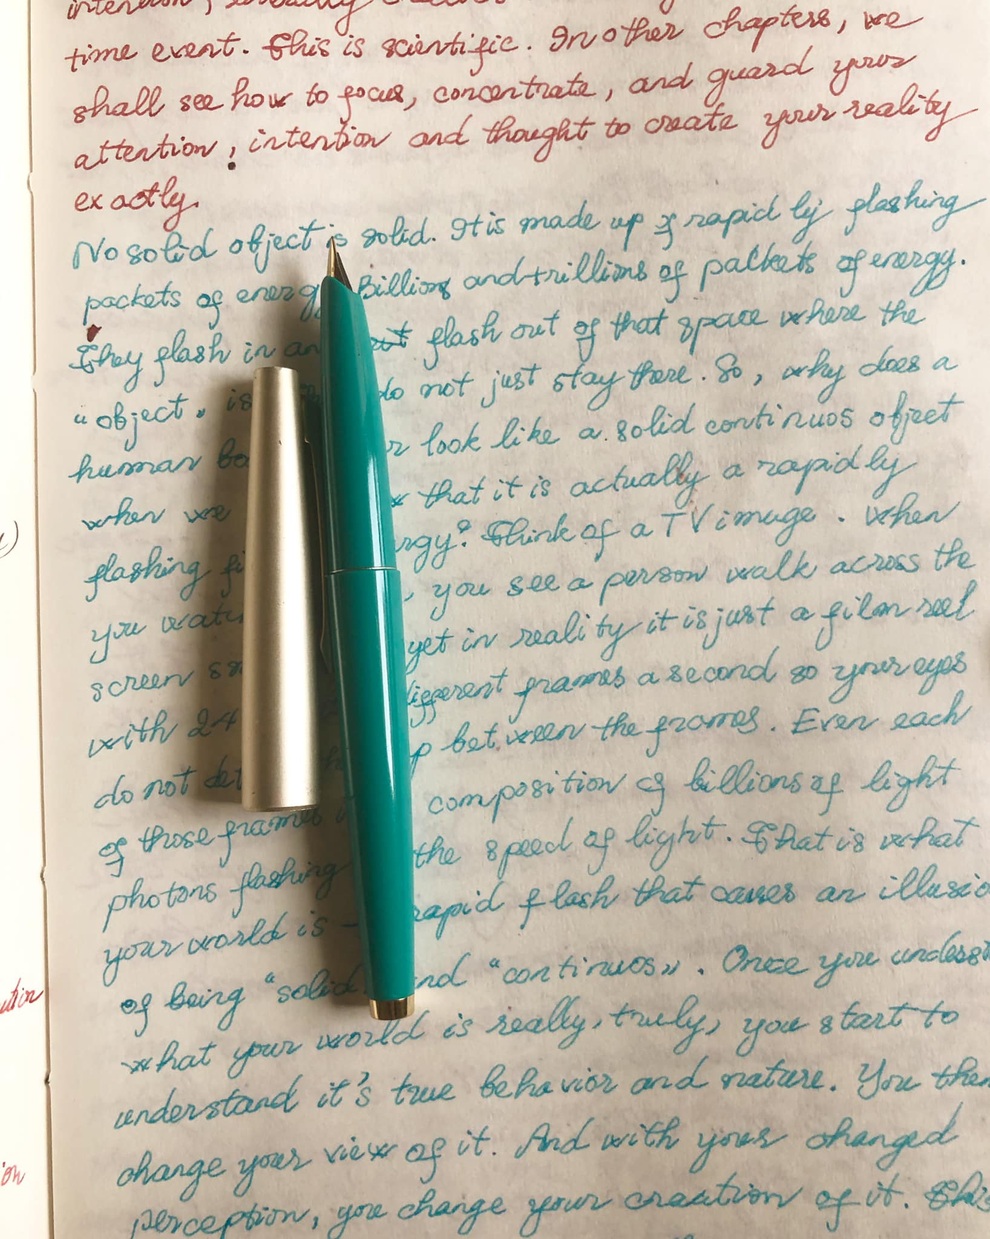 intention,
time event. This is scientific. In other chapters, we
shall see how to focus, concentrate, and guard your
attention, intention and thought to create your reality
exactly.
No solid object is solid. It is made up of rapidly flashing
packets of energy. Billions and trillions of packets of energy.
They flash in an out flash out of that space where the
"object" is do not just stay there. So, why does a
human look like a solid continuos object
when we that it is actually a rapidly
flashing Think of a TV image. When
you you see a person walk across the
screen yet in reality it is just a film reel
with 24 different frames a second so your eyes
do not between the frames. Even each
of those frames composition of billions of light
photons flashing the speed of light. That is what
your world is - rapid flash that causes an
of being "solid and "continuos". Once you
what your world is really, truly, you start to
understand it's true behavior and nature. You then
change your view of it. And with your changed
perception, you change your creation of it.